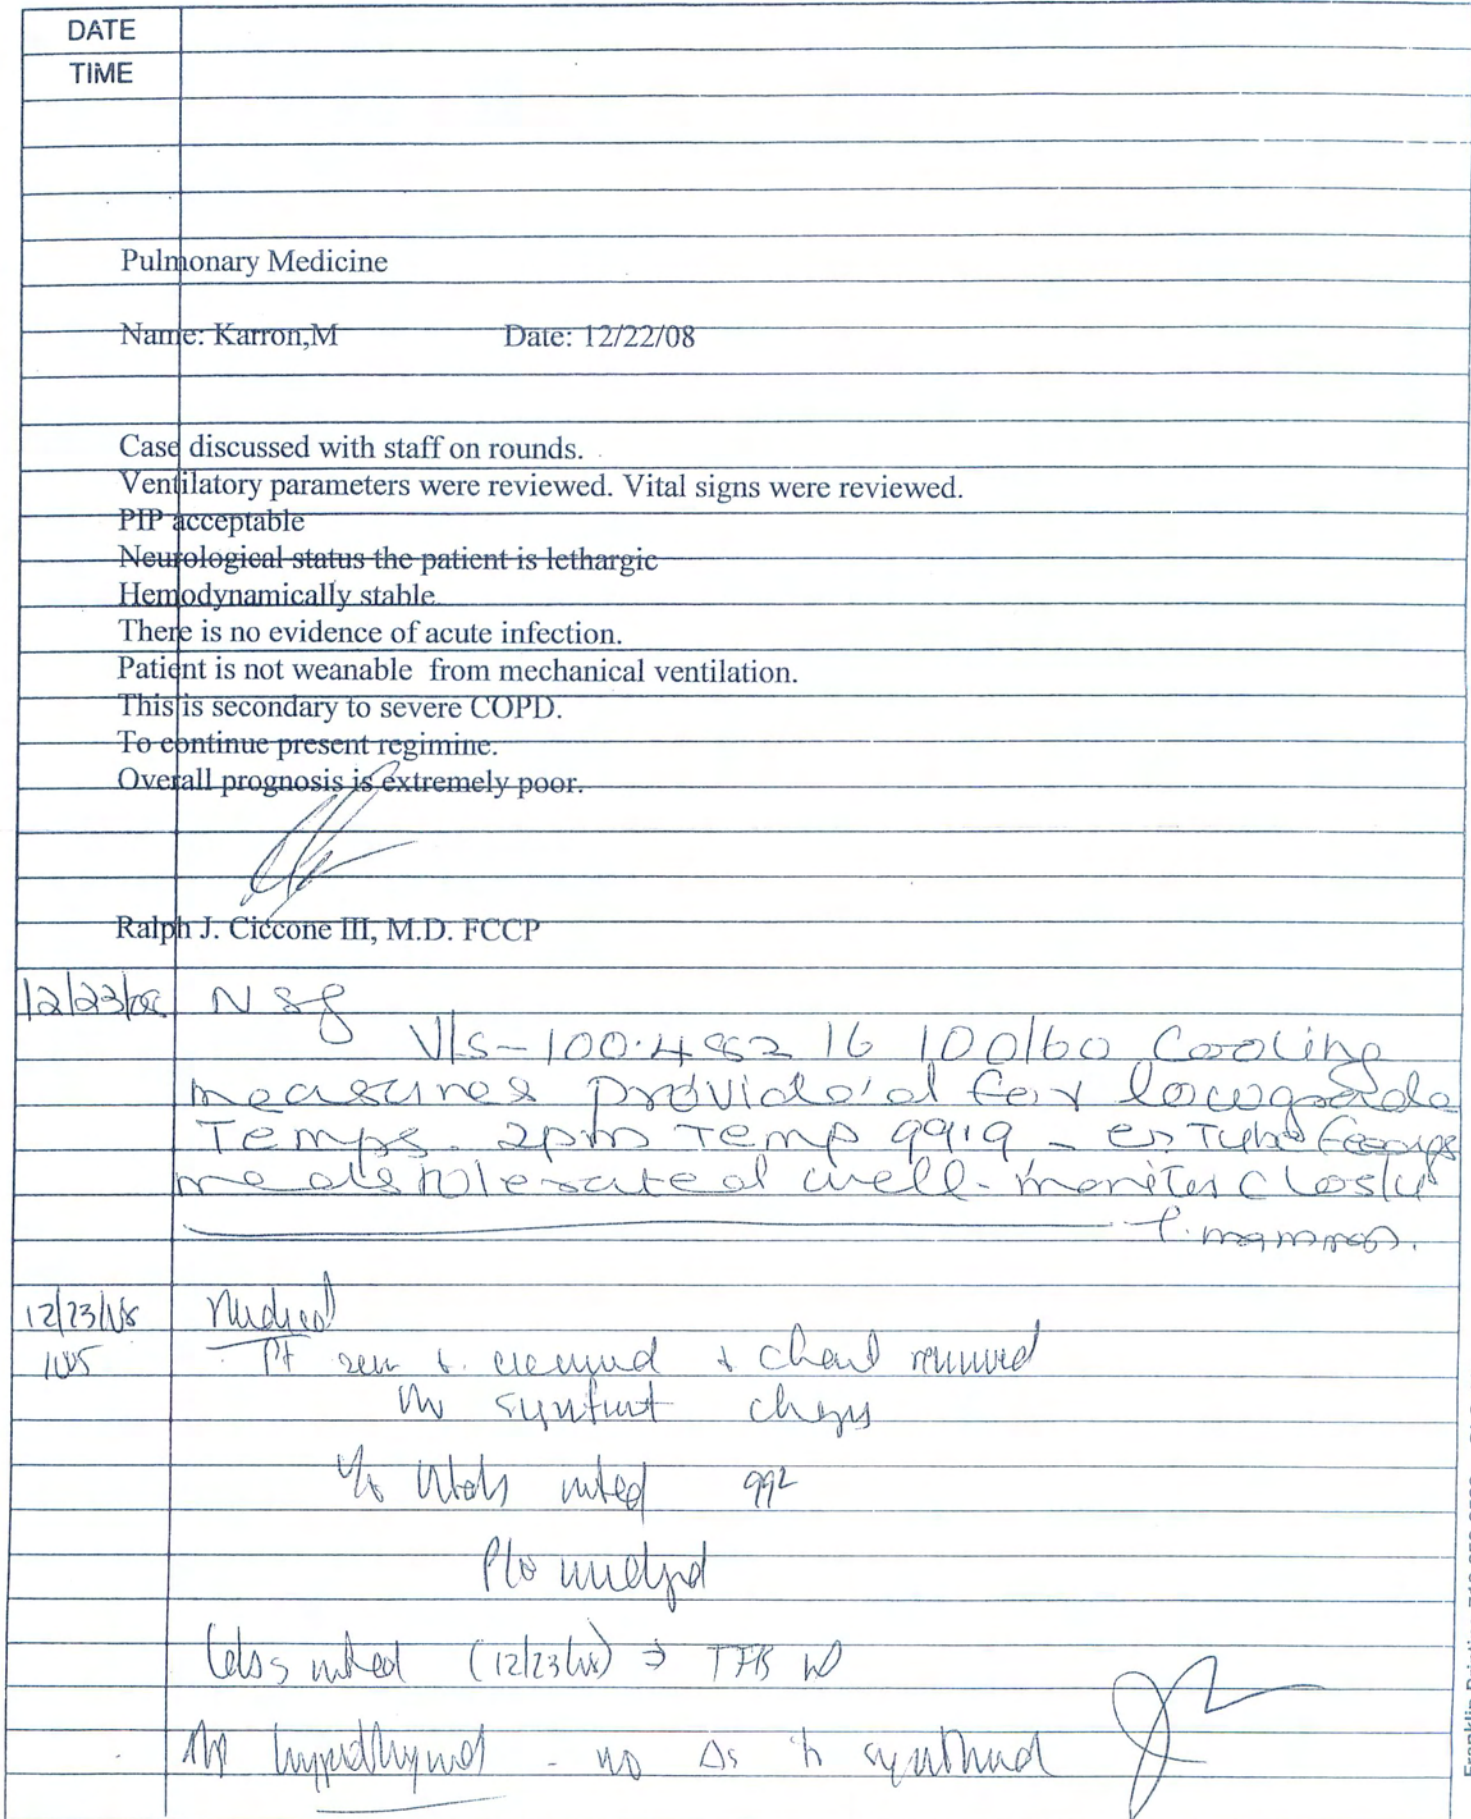 DATE
TIME
Pulmonary Medicine
Name: Karron,M Date: 12/22/08
Case discussed with staff on rounds.
Ventilatory parameters were reviewed. Vital signs were reviewed.
PIP acceptable
Neurological status the patient is lethargic
Hemodynamically stable
There is no evidence of acute infection.
Patient is not weanable from mechanical ventilation.
This is secondary to severe COPD.
To continue present regimine.
Overall prognosis is extremely poor.
Ralph J. Ciccone III, M.D. FCCP
12/23/08 Nsg
V/S - 100.4 82 16 100/60 Cooling
measures provided for lowgrade
Temps. 2pm Temp 99.9 - Tube feedings
meds tolerated well - monitor closly
12/23/08 Medical
Pt seen & examined & chart reviewed
No significant changes
Vitals noted 99²
Labs noted (12/23/08) → TFTs
hypothyroid - no Δs in synthroid
Franklin Printing